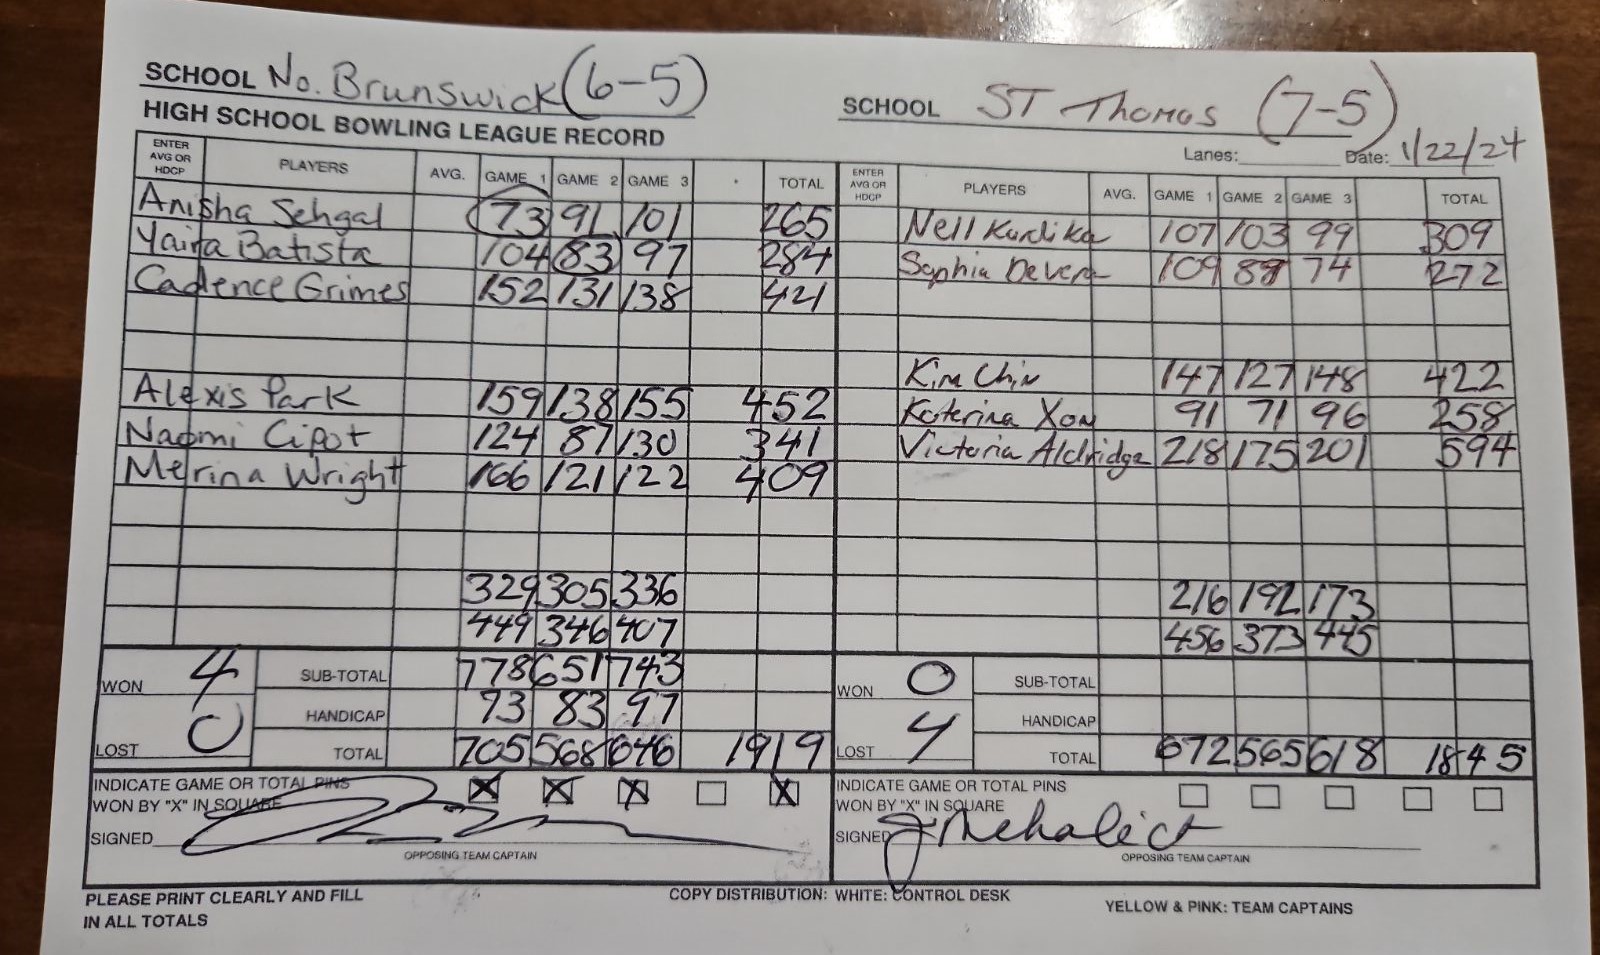 SCHOOL No. Brunswick (6-5)
SCHOOL ST Thomas (7-5)
HIGH SCHOOL BOWLING LEAGUE RECORD
Lanes: Date: 1/22/24
ENTER AVG OR HDCP PLAYERS AVG. GAME 1 GAME 2 GAME 3 TOTAL ENTER AVG OR HDCP PLAYERS AVG. GAME 1 GAME 2 GAME 3 TOTAL
Anisha Sehgal 73 91 101 265 Nell Kurdika 107 103 99 309
Yaira Batista 104 83 97 284 Sophia DeVera 109 89 74 272
Cadence Grimes 152 131 138 421
Kim Chin 147 127 148 422
Alexis Park 159 138 155 452 Katerina Xon 91 71 96 258
Naomi Cipot 124 87 130 341 Victoria Aldridge 218 175 201 594
Merina Wright 166 121 122 409
329 305 336 216 192 173
449 346 407 456 373 445
WON 4 SUB-TOTAL 778 651 743 WON 0 SUB-TOTAL
HANDICAP 73 83 97 HANDICAP
LOST 0 TOTAL 705 568 646 1919 LOST 4 TOTAL 672 565 618 1845
INDICATE GAME OR TOTAL PINS X X X X INDICATE GAME OR TOTAL PINS
WON BY "X" IN SQUARE WON BY "X" IN SQUARE
SIGNED SIGNED
OPPOSING TEAM CAPTAIN OPPOSING TEAM CAPTAIN
PLEASE PRINT CLEARLY AND FILL COPY DISTRIBUTION: WHITE: CONTROL DESK YELLOW & PINK: TEAM CAPTAINS
IN ALL TOTALS